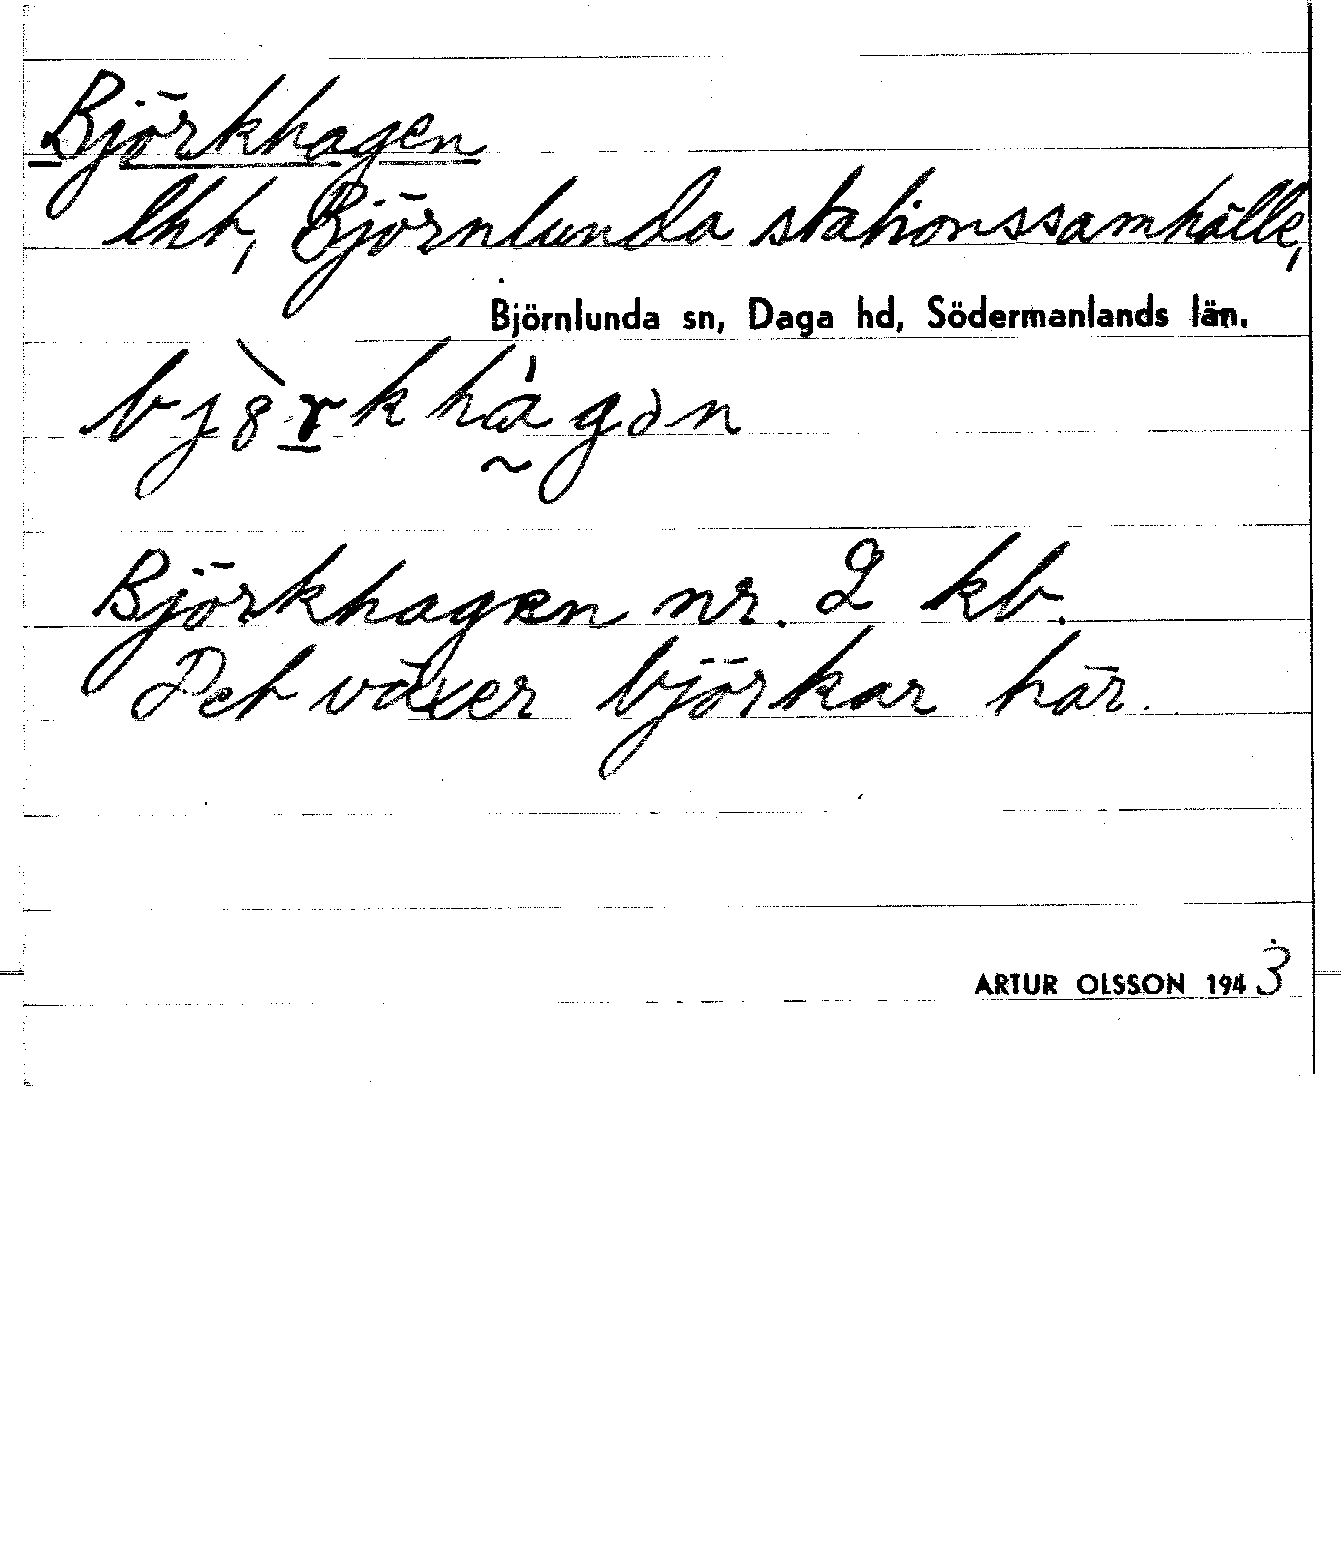 Björkhagen
lht, Björnlunda stationssamhälle,
Björnlunda sn, Daga hd, Södermanlands län.
bjȣ̀r̲khá̰gən
Björkhagen nr. 2 kb.
Det växer björkar här.
ARTUR OLSSON 1943